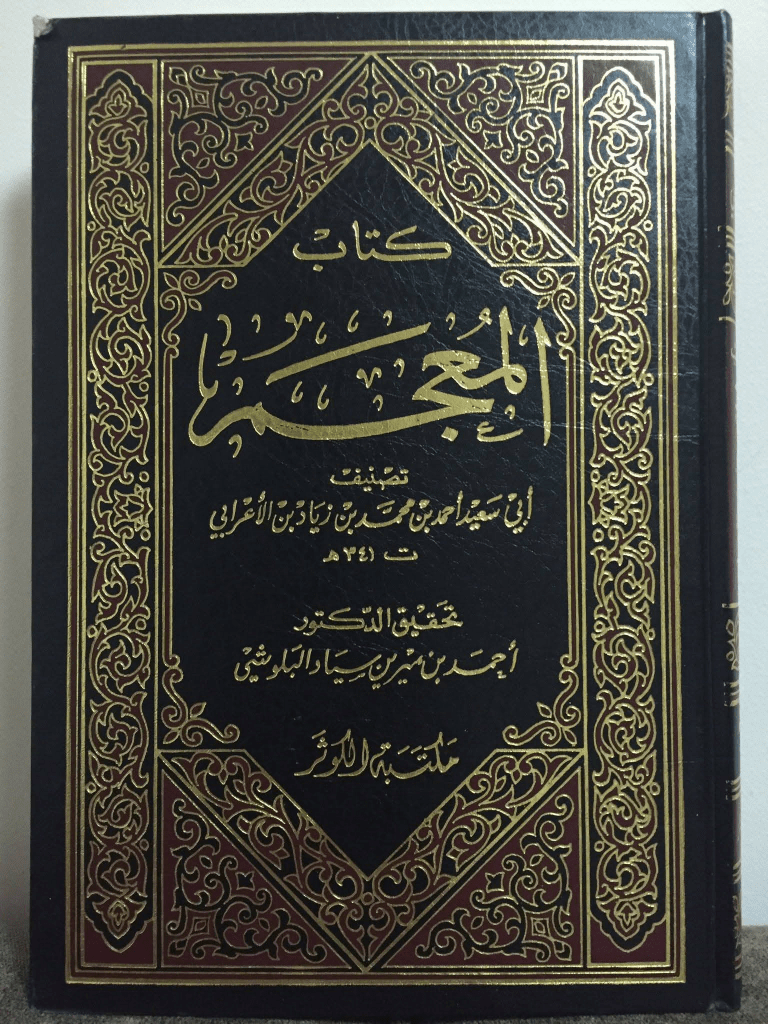 كتاب
المُعْجَم
تصنيف
أبي سَعيد أحمد بن محمَّد بن زيَاد بن الأعْرابي
ت ٣٤١ هـ
تحَقيق الدّكتور
أحمَد بن ميرين سِيَاد البَلوشيّ
مَكتَبَة الكوثَر